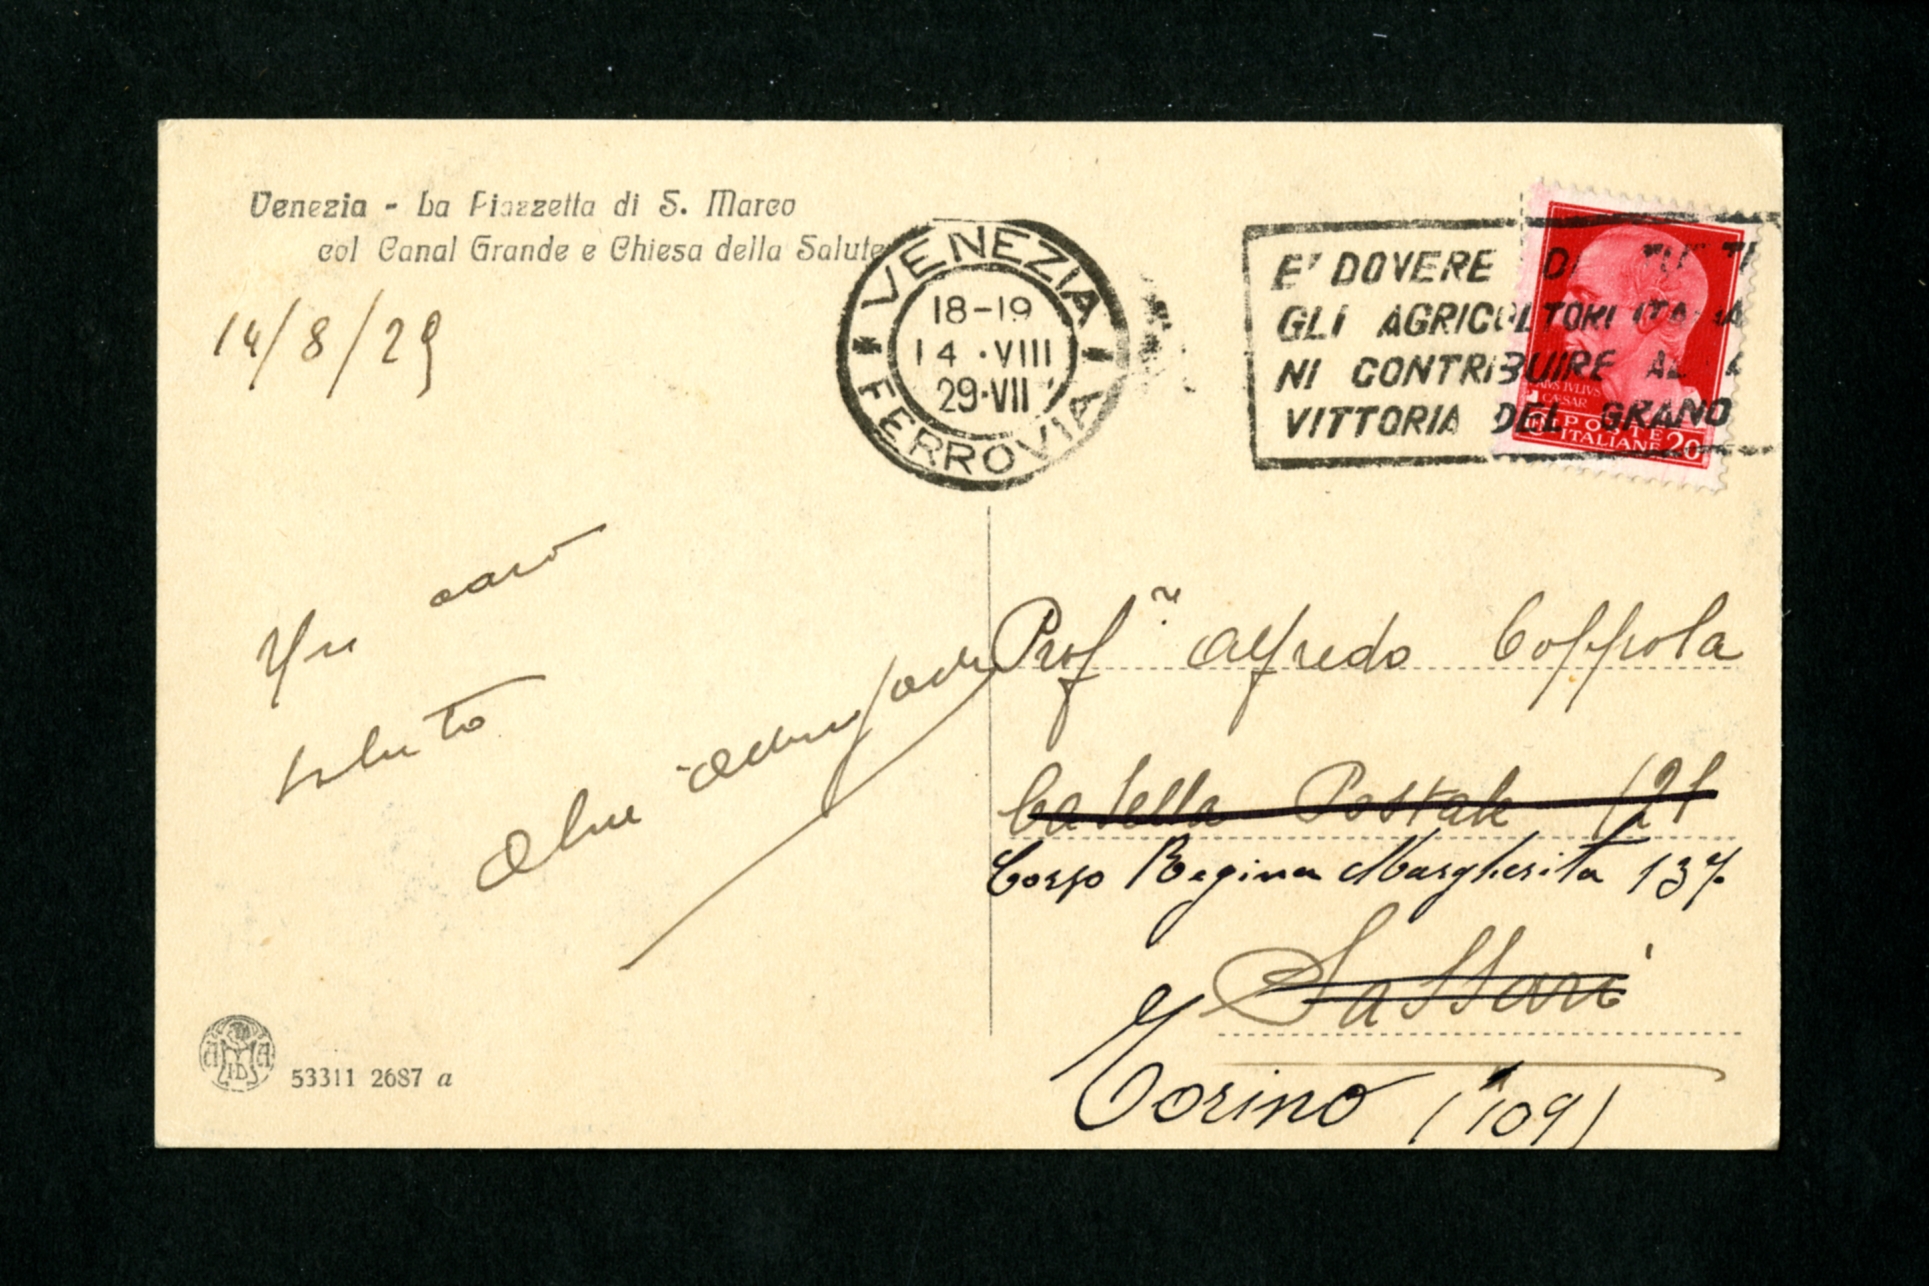 Venezia - La Piazzetta di S. Marco
col Canal Grande e Chiesa della Salute
14/8/29
VENEZIA
18-19
14·VIII
29·VII
FERROVIA
E' DOVERE DI TUTTI
GLI AGRICOLTORI ITALIA
NI CONTRIBUIRE ALLA
VITTORIA DEL GRANO
CAIVS IVLIVS
CAESAR
POSTE
ITALIANE 20
Un caro
saluto
Prof.r Alfredo Coppola
Casella Postale 121
Corso Regina Margherita 137
Sassari
Torino (109)
53311 2687 a